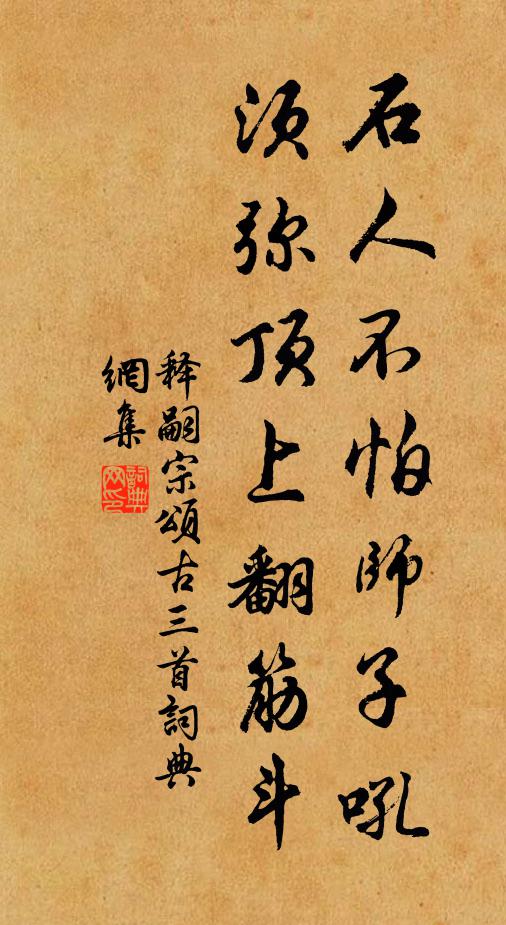 石人不怕師子吼
须弥顶上翻筋斗
释嗣宗頌古三首詞典
網集
詞典网印